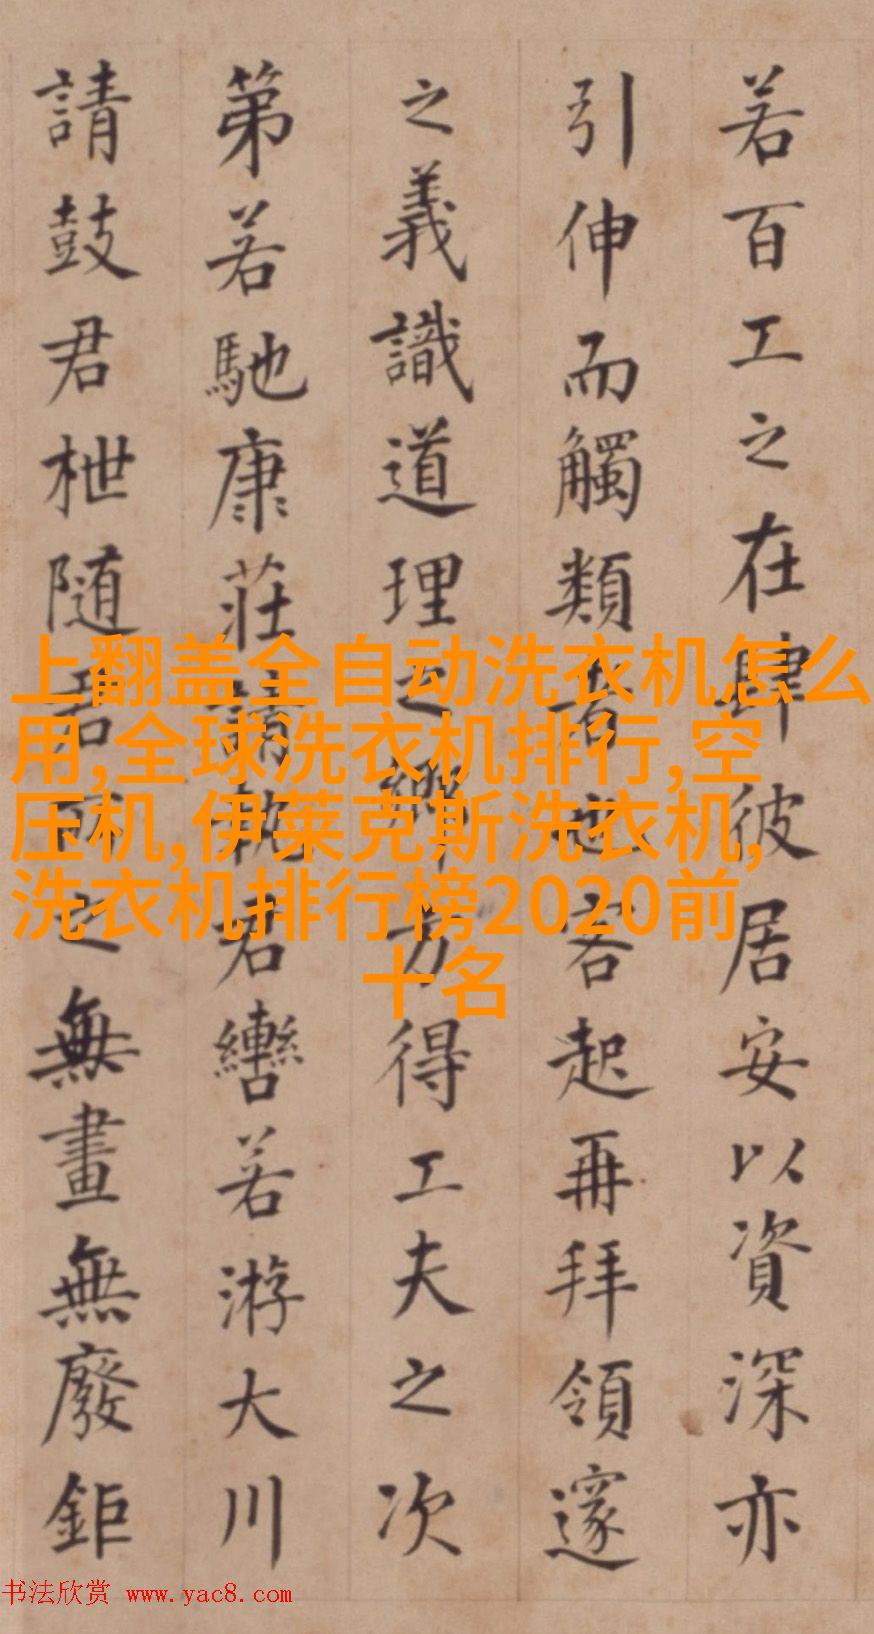 若百工之在肆彼居安以資深亦
引伸而觸類者也客起再拜領邃
之義識道理之鄉方得工夫之次
第若馳康莊請執君轡若游大川
請鼓君枻随君所之無畫無廢鉅
上翻盖全自动洗衣机怎么
用,全球洗衣机排行,空
压机,伊莱克斯洗衣机,
洗衣机排行榜2020前
十名
书法欣赏 www.yac8.com